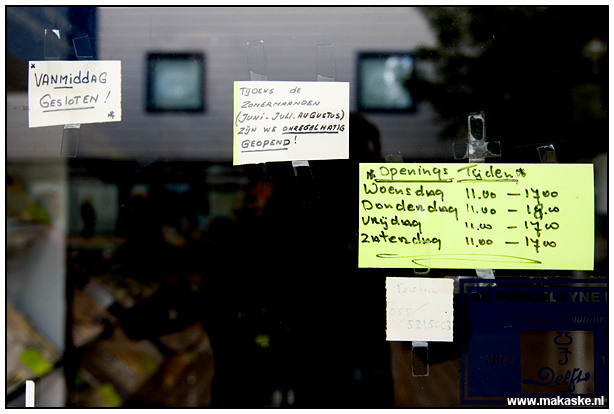 VANMIDDAG
GESLOTEN!
TIJDENS DE
ZOMERMAANDEN
(JUNI-JULI.AUGUSTUS)
ZIJN WE ONREGELMATIG
GEOPEND!
Openings Tijden
Woensdag 11.00 - 17.00
Donderdag 11.00 - 18.00
Vrijdag 11.00 - 17.00
Zaterdag 11.00 - 17.00
DE PORCELEYNE
Delft
www.makaske.nl